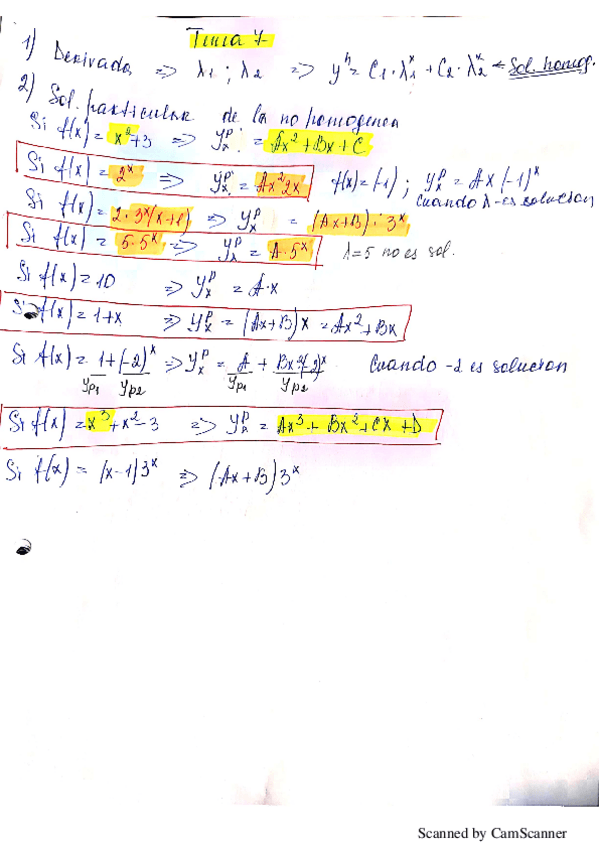 Tema 7
1) Derivada ⇒ λ1 ; λ2 ⇒ y^h = C1·λ1^x + C2·λ2^x ← Sol. homog.
2) Sol. particular de la no homogenea
Si f(x) = x²+3 ⇒ y_x^p = Ax²+Bx+C
Si f(x) = 2^x ⇒ y_x^p = Ax²2x f(x)=(-1) ; y_x^p = Ax(-1)^x
cuando λ-es solucion
Si f(x) = 2·3^x(x+1) ⇒ y_x^p = (Ax+B)·3^x
Si f(x) = 5·5^x ⇒ y_x^p = A·5^x λ=5 no es sol.
Si f(x) = 10 ⇒ y_x^p = A·x
Si f(x) = 1+x ⇒ y_x^p = (Ax+B)x = Ax²+Bx
Si f(x) = 1+(-2)^x ⇒ y_x^p = A + Bx(-2)^x Cuando -2 es solucion
yp1 yp2 yp1 yp2
Si f(x) = x³+x²-3 ⇒ y_x^p = Ax³+Bx²+Cx+D
Si f(x) = (x-1)3^x ⇒ (Ax+B)3^x
Scanned by CamScanner